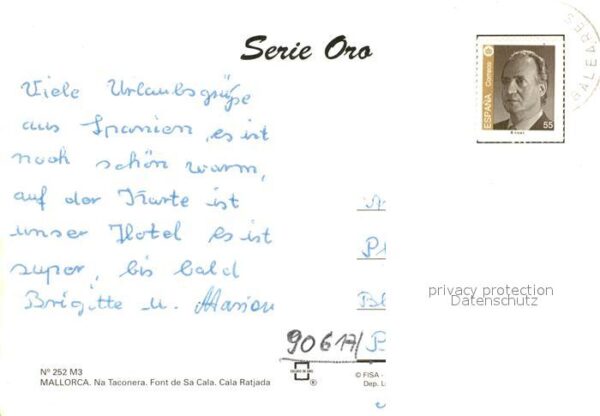 Serie Oro
BALEARES
Correos
ESPAÑA
55
Viele Urlaubsgrüße
aus Spanien, es ist
noch schön warm,
auf der Karte ist
unser Hotel es ist
super, bis bald
Brigitte u. Marion
privacy protection
Datenschutz
90617/
Nº 252 M3
MALLORCA. Na Taconera. Font de Sa Cala. Cala Ratjada
© FISA -
Dep. L